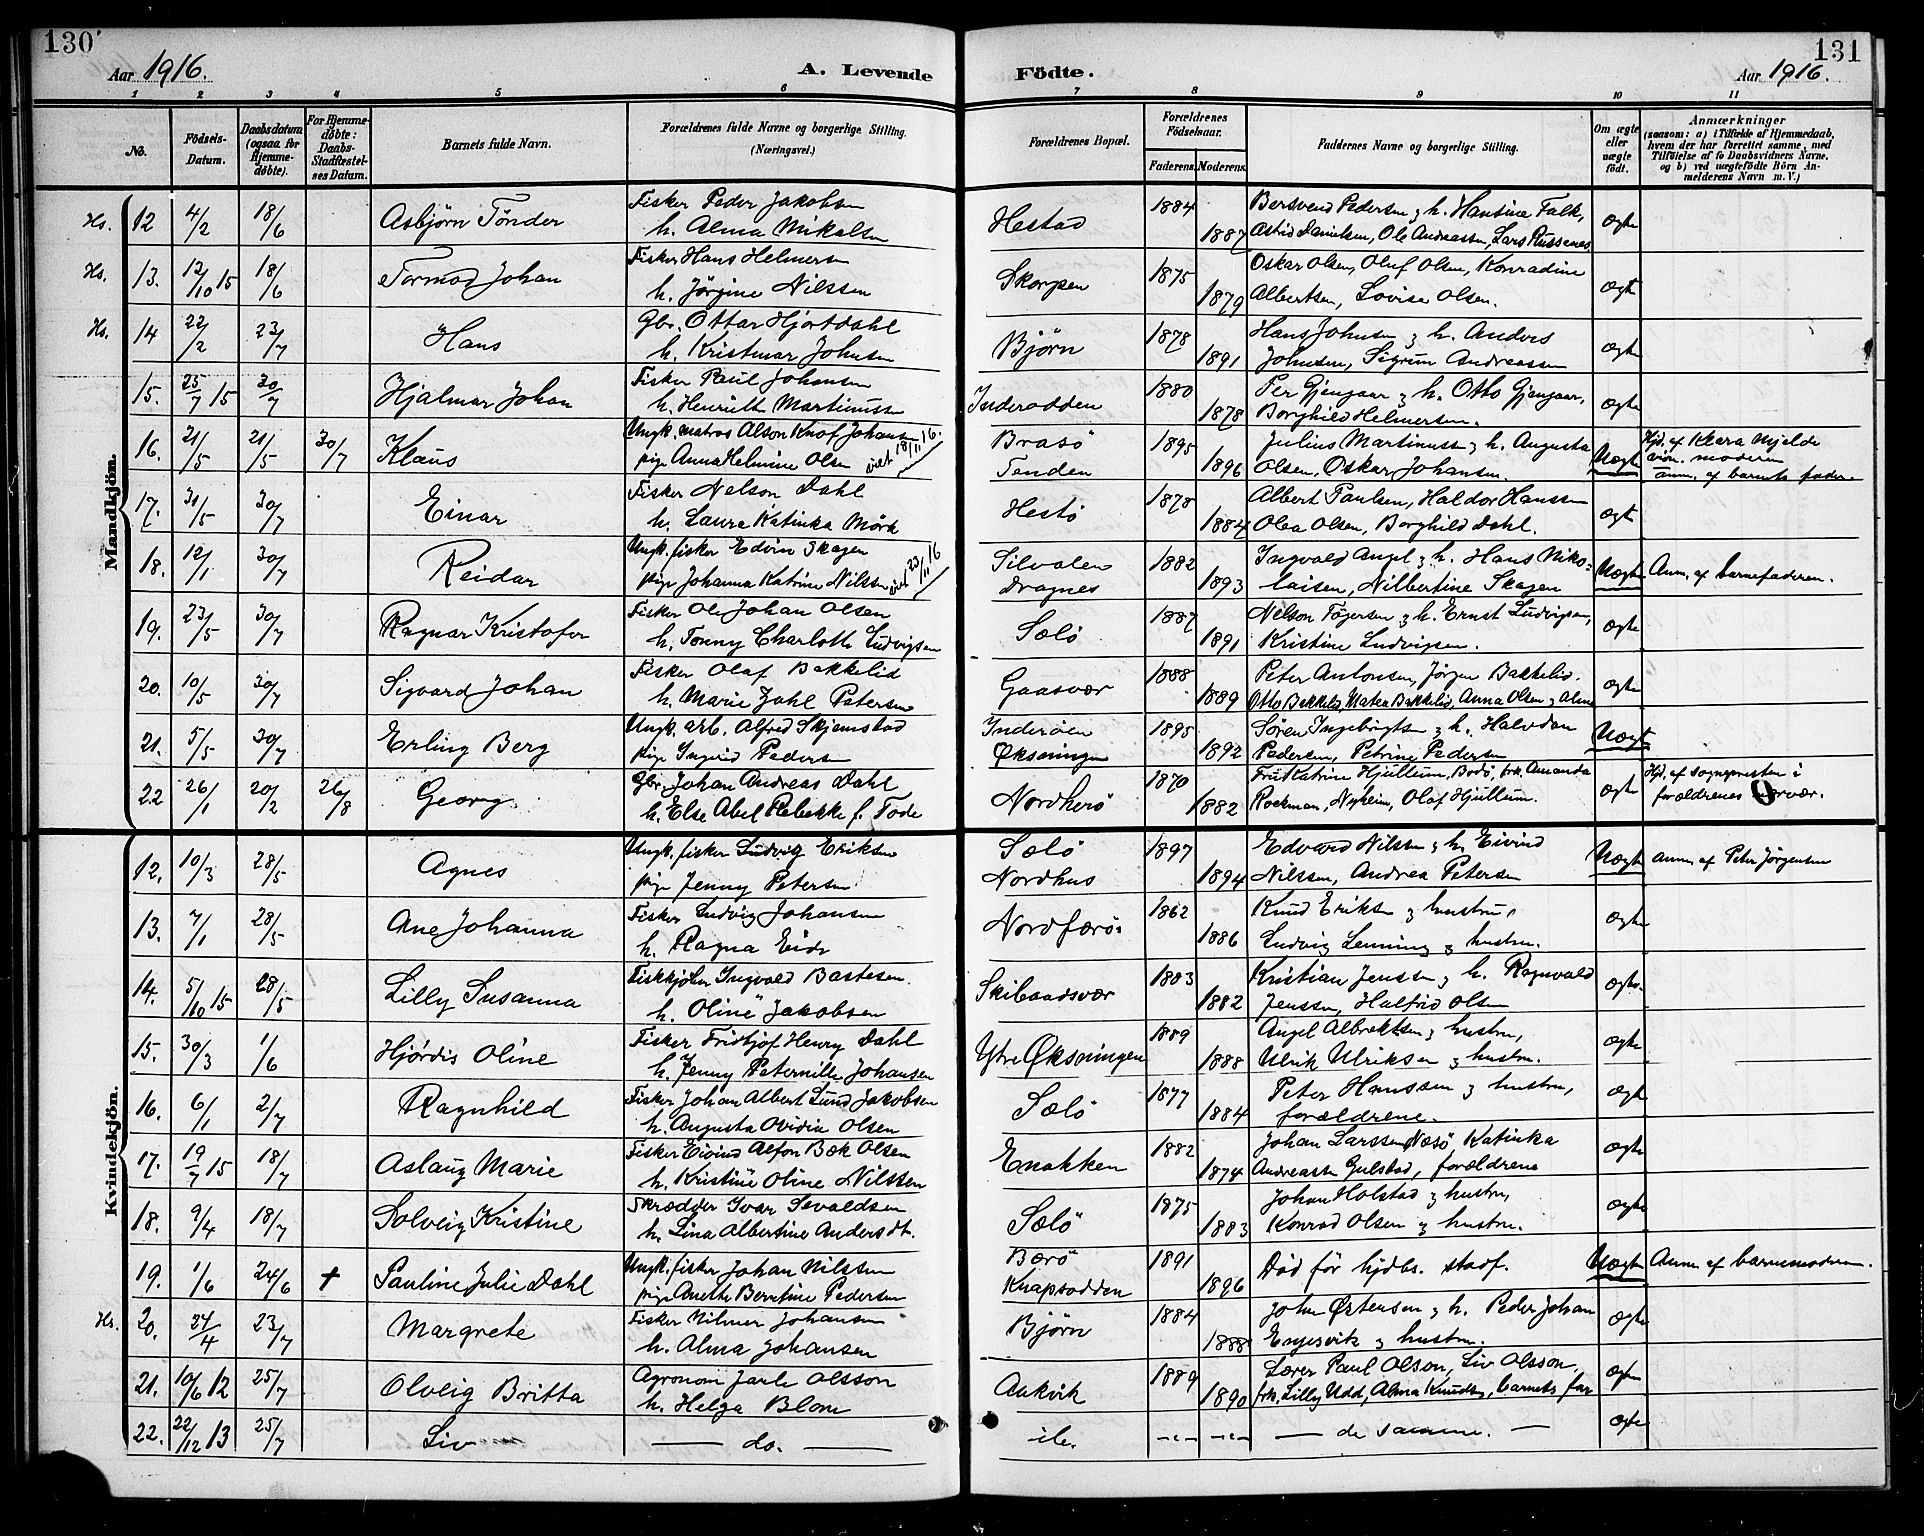 130
131
Aar 1916.
A. Levende
Födte.
Aar 1916.
1 2 3 4 5 6 7 8 9 10 11
No.
Födsels-
Datum.
Daabsdatum
(ogsaa for
Hjemme-
döbte).
For Hjemme-
döbte:
Daabs-
Stadfæstel-
ses Datum.
Barnets fulde Navn.
Forældrenes fulde Navne og borgerlige Stilling.
(Næringsvei.)
Forældrenes Bopæl.
Forældrenes
Födselsaar.
Faderens. Moderens.
Faddernes Navne og borgerlige Stilling.
Om ægte
eller
uægte
födt.
Anmærkninger
(saasom: a) i Tilfælde af Hjemmedaab,
hvem der har forrettet samme, med
Tilföielse af to Daabsvidners Navne,
og b) ved uægtefödte Börn An-
melderens Navn m. V.)
Mandkjön.
Hs. 12 4/2 18/6 Asbjörn Tönder Fisker Peder Jakobsen Hestad 1884 Bersvend Pedersen & h. Hansine Falk, ægte
h. Alma Mikalsen 1887 Astrid Danielsen, Ole Andreassen, Lars Russenes
Hs. 13. 12/10 15 18/6 Tormod Johan Fisker Hans Helmersen Skorpen 1875 Oskar Olsen, Oluf Olsen, Konradine ægte
h. Jörgine Nilssen 1879 Albertsen, Lovise Olsen.
Hs. 14 22/2 23/7 Hans Gbr. Ottar Hjortdahl Björn 1878 Hans Johnsen & h. Anders ægte
h. Kristmar Johnsen 1891 Johnsen, Sigrun Andreassen
15. 25/7 15 30/7 Hjalmar Johan Fisker Paul Johansen Inderodden 1880 Per Gjengaar & h. Otto Gjengaar, ægte
h. Henriette Martinussen 1878 Borghild Helmersen.
16. 21/5 21/5 30/7 Klaus Ungk. matros Alson Knof Johansen Brasö 1895 Julius Martinussen & h. Augusta Uægte Hjd. af Klara Mjelde
pige Anna Helmine Olsen viet 18/11 16. Tenden 1896 Olsen, Oskar Johansen. moderen
anm. af barnets fader.
17. 31/5 30/7 Einar Fisker Nelson Dahl Hestö 1878 Albert Paulsen, Haldor Hanssen ægte
h. Laura Katinka Mörk 1884 Olea Olsen, Borghild Dahl.
18. 12/1 30/7 Reidar Ungk. fisker Edvin Skagen Silvalen 1882 Ingvald Angel & h. Hans Niko- Uægte Anm. af barnefaderen.
pige Johanna Katrine Nilssen viet 23/11 16 Dragnes 1893 laisen, Nilbertine Skagen
19. 23/5 30/7 Ragnar Kristofer Fisker Ole Johan Olsen Sælö 1887 Nelson Tögersen & h. Ernst Ludvigsen, ægte
h. Tonny Charlotte Ludvigsen 1891 Kristine Ludvigsen.
20. 10/5 30/7 Sigvard Johan Fisker Olaf Bakkelid Gaasvær 1888 Peter Antonsen, Jörgen Bakkelid. ægte
h. Marie Dahl Petersen 1889 Otto Bakkelid, Matea Bakkelid, Anna Olsen & Alma
21. 5/5 30/7 Erling Berg Ungk. arb. Alfred Skjemstad Inderöen 1895 Sören Ingebrigtsen & h. Halvdan Uægte
pige Ingrid Pedersen Øksningen 1892 Pedersen, Petrine Pedersen
22 26/1 20/2 26/8 Georg Gbr. Johan Andreas Dahl Nordherö 1870 Fru Katrine Hjullum, Bodö, frk. Amanda ægte Hjd. af sognepresten i
h. Else Abel Rebekke f. Tode 1882 Rockman, Nyheim, Olaf Hjullum. forældrenes nærvær.
Kvindekjön.
12. 10/3 28/5 Agnes Ungk. fisker Ludvig Eriksen Sælö 1897 Edvard Nilssen & h. Eivind Uægte anm. af Peter Jörgensen
pige Jenny Petersen Nordhus 1894 Nilssen, Andrea Petersen
13. 7/1 28/5 Ane Johanna Fisker Ludvig Johansen Nordfærö 1862 Knud Eriksen & hustru, ægte
h. Ragna Eide 1886 Ludvig Lenning & hustru.
14. 5/10 15 28/5 Lilly Susanna Fiskkjöber Ingvald Bastesen Skibaadsvær 1883 Kristian Jenssen & h. Ragnvald ægte
h. Oline Jakobsen 1882 Jenssen, Halfrid Olsen
15. 30/3 1/6 Hjördis Oline Fisker Fridtjof Henry Dahl Ytre Øksningen 1889 Angel Albrektsen & hustru, ægte
h. Jenny Peternille Johansen 1888 Ulrik Ulriksen & hustru.
16. 6/1 2/7 Ragnhild Fisker Johan Albert Lund Jakobsen Sælö 1877 Peter Hanssen & hustru, ægte
h. Augusta Ovidia Olsen 1884 forældrene.
17. 19/7 15 18/7 Aslaug Marie Fisker Eivind Alfon Bæk Olsen Enokken 1882 Johan Larssen Næsö Katinka ægte
h. Kristine Oline Nilssen 1874 Andreassen Gulstad, forældrene
18. 9/4 18/7 Solveig Kristine Skrædder Ivar Sevaldsen Sælö 1875 Johan Holstad & hustru, ægte
h. Lina Albertine Andersdt. 1883 Konrad Olsen & hustru.
19. 1/6 24/6 + Pauline Julie Dahl Ungk. fisker Johan Nilssen Bærö 1891 Död för hjdbs. stadf. Uægte Anm. af barnemoderen.
pige Anette Berntine Pedersen Knapsodden 1896
Hs. 20. 24/4 23/7 Margrete Fisker Hilmer Johansen Björn 1884 John Örtensen & h. Peder Johan ægte
h. Alma Johansen 1888 Engesvik & hustru.
21. 10/6 12 25/7 Olveig Britta Agronom Jarle Olsson Aakvik 1889 Lærer Paul Olsson, Liv Olsson, ægte
h. Helga Blom 1890 frk. Lilly Udd, Alma Knudsen, barnets far
22. 22/12 13 25/7 Liv — do. — ib. -"- -"- — de samme. — ægte